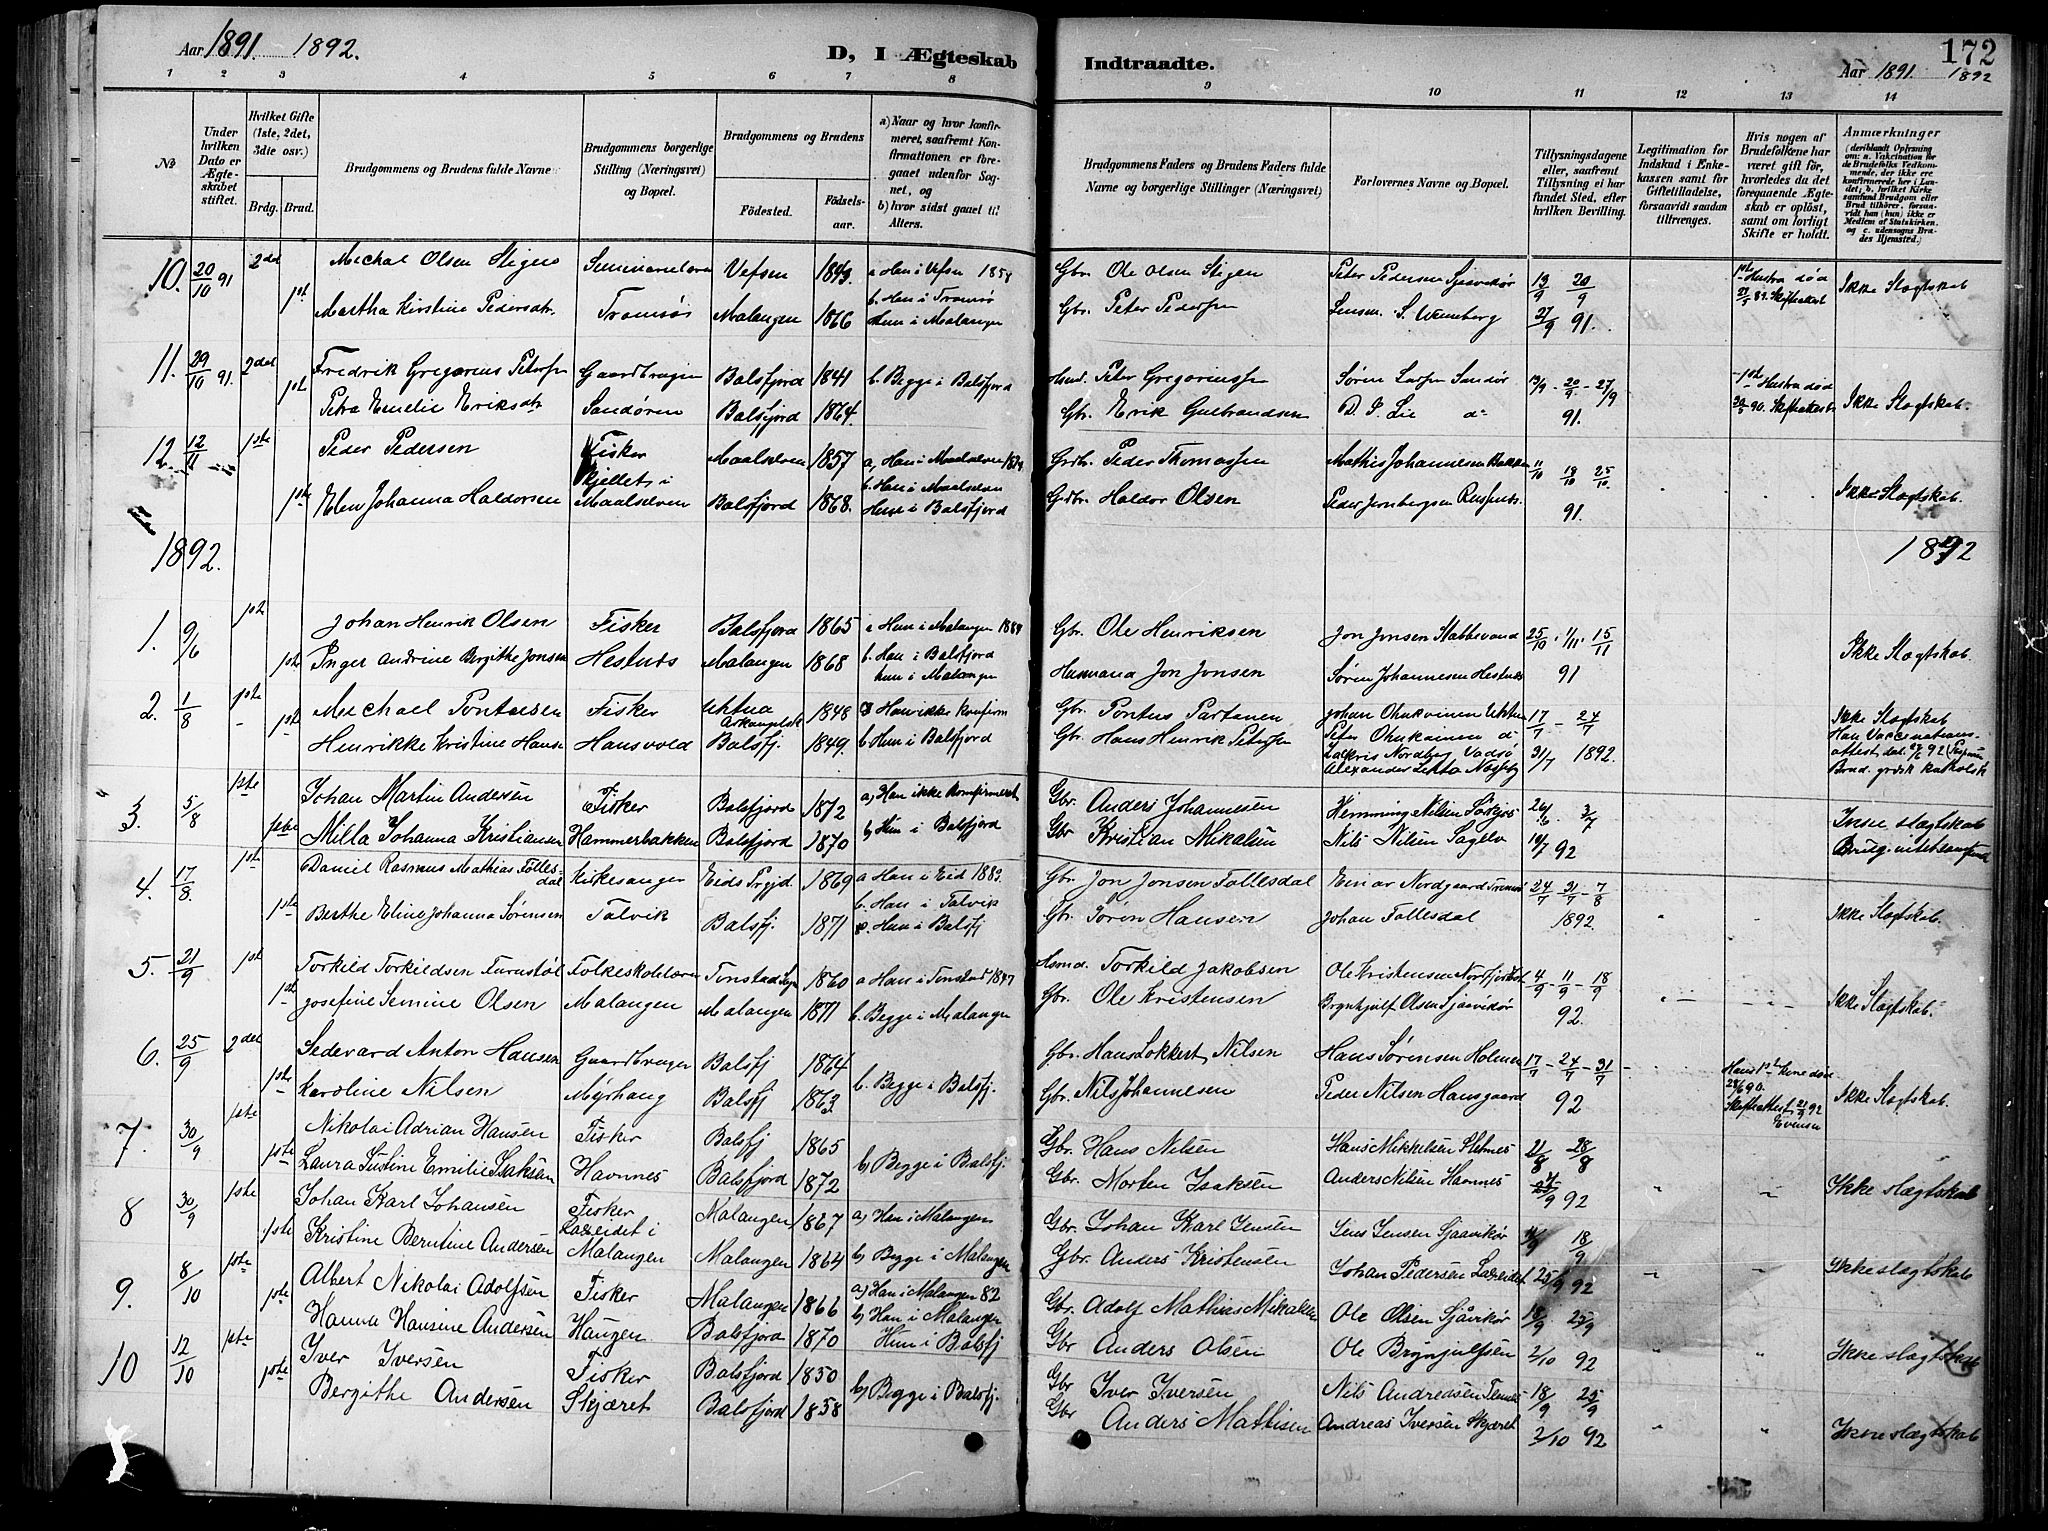 Aar 1891. 1892.
D, I Ægteskab Indtraadte.
Aar 1891. 1892
172
1 2 3 4 5 6 7 8 9 10 11 12 13 14
No
Under hvilken Dato er Ægteskabet stiftet.
Hvilket Gifte (1ste, 2det, 3die osv.)
Brdg. Brud.
Brudgommens og Brudens fulde Navne
Brudgommens borgerlige Stilling (Næringsvei) og Bopæl.
Brudgommens og Brudens
Fødested. Fødselsaar.
a) Naar og hvor konfirmeret, saafremt Konfirmationen er foregaaet udenfor Sognet, og
b) hvor sidst gaaet til Alters.
Brudgommens Faders og Brudens Faders fulde Navne og borgerlige Stillinger (Næringsvei)
Forlovernes Navne og Bopæl.
Tillysningsdagene eller, saafremt Tillysning ei har fundet Sted, efter hvilken Bevilling.
Legitimation for Indskud i Enkekassen samt for Giftetilladelse, forsaavidt saadan tiltrænges.
Hvis nogen af Brudefolkene har været gift før, hvorledes da det foregaaende Ægteskab er opløst, samt om lovligt Skifte er holdt.
Anmærkninger (deriblandt Oplysning om: a. Vakcination for de Brudefolks Vedkommende, der ikke ere konfirmerede her i Landet; b. hvilket Kirkesamfund Brudgom eller Brud tilhører, forsaavidt han (hun) ikke er Medlem af Statskirken, og c. udensogns Brudes Hjemsted.
10. 20/10 91 2det Mechal Olsen Stigen Vefsen 1843. a Han i Vefsen Gbr. Ole Olsen Stigen Peter Pedersen Sjaavikør 13/9 20/9 1st Hustru død Ikke Slægtskab
1st. Martha Kirstine Pedersdtr. Tromsø Malangen 1866 b. Han i Tromsø Hun i Malangen Gbr. Peter Pedersen 27/9 91.
11. 29/10 91. 2det Fredrik Gregorius Petersen Gaardbruger Balsfjord 1841 b. Begge i Balsfjord Peter Gregoriussen Søren Larsen Sandør 13/9 - 20/9 - 27/9 1st Hustru død
1st Petra Emelie Eriksdtr Sandøren Balsfjord 1864. Gbr. Erik Gulbrandsen D. S. Lie do 91. Ikke Slægtskab.
12. 12/11 1ste Peder Pedersen Fisker Maalselven 1857 a, Han i Maalselven Grdbr. Peder Thomassen Mathis Johannesen Bakken 11/10 18/10 25/10
1st Elen Johanna Haldorsen Kjellet i Maalselven Balsfjord 1868. b. Han i Maalselven Hun i Balsfjord Grdbr. Haldor Olsen 91. Ikke Slægtskab.
1892. 1892
1. 9/6 1st Johan Henrik Olsen Fisker Balsfjord 1865 a Hun i Malangen 1884 Gbr. Ole Henriksen Jon Jonsen Stabbevand 25/10 . 1/11 . 15/11
1st. Inger Andrine Bergithe Jonsen Hestnes Malangen 1868 b. Han i Balsfjord hun i Malangen Husmand Jon Jonsen Søren Johannesen Hestnes 91 Ikke Slægtskab.
2. 1/8 1ste Mechael Pontusen Fisker Uhtua Arkangelsk 1848 a Han ikke konfirm Gbr. Pontus Partanen 17/7 - 24/7 Ikke Slægtskab
1ste Henrikke Kristine Hansen Hansvold Balsfj. 1849. b. Hun i Balsfjord Gbr. Hans Henrik Petersen 31/7 1892. Han Vaccinationsattest
3. 5/8 1ste Johan Martin Andersen Fisker Balsfjord 1872 a, Han ikke konfirmeret Gbr. Anders Johannesen Hemming Nilsen 26/6 3/7 Ikke slægtskab
1ste Milla Johanna Kristiansen Hammerbakken Balsfjord 1870 b, Hun i Balsfjord Gbr Kristian Mikalsen Nils Nilsen Sagelv 10/7 92
4. 17/8. 1st Daniel Rasmus Mathias Føllesdal Kirkesanger Eids Prgjd. 1869 a Han i Eid 1883. Gbr. Jon Jonsen Føllesdal Einar Nordgaard Tromsø 24/7 - 31/7 - 7/8
1ste Berthe Eline Johanna Sørensen Talvik Balsfj. 1871 b. Han i Talvik Hun i Balsfj Gbr. Søren Hansen Johan Føllesdal 1892. Ikke Slægtskab.
5. 21/9 1st Torkild Torkildsen Furustøl Folkeskolelærer Tonstad 1860 a Han i Tonstad Torkild Jakobsen Ole Kristensen 4/9 - 11/9 - 18/9
1st Josefine Semine Olsen Malangen Malangen 1871 b. Begge i Malangen Gbr. Ole Kristensen Brynhjulf Olsen Sjaavikør 92. Ikke Slægtskab.
6. 25/9 2det Sedevard Anton Hansen Gaardbruger Balsfj 1864 b. Begge i Balsfj. Gbr. Hans Lokkert Nilsen Hans Sørensen Holmen 17/7 - 24/7 - 31/7
1ste Karoline Nilsen Myrhaug Balsfj 1863. Gbr. Nils Johannesen Peder Nilsen Hansgaard 92 Ikke Slægtskab.
7. 30/9 1ste Nikolai Adrian Hansen Fisker Balsfj 1865 b, Begge i Balsfj. Gbr. Hans Nilsen Hans Mikkelsen Selnes 21/8 28/8
1ste Laura Justine Emilie Isaksen Havnnes Balsfjord 1872 Gbr. Morten Isaksen Anders Nilsen Havnnes 92 Ikke slægtskab
8 30/9 1ste Johan Karl Johansen Fisker Malangen 1867 a) Han i Malangen Gbr. Johan Karl Jensen Jens Jensen Sjaavikør 11/9 18/9
1ste Kristine Berntine Andersen Lakseidet i Malangen Malangen 1864 b, Begge i Malangen Gbr. Anders Kristensen Johan Pedersen Lakseidet 25/9 92 Ikke slægtskab
9. 8/10 1ste Albert Nikolai Adolfsen Fisker Malangen 1866 a) Han i Malangen 82 Gbr. Adolf Mathias Mikalsen Ole Olsen Sjåvikør 18/9 25/9
1ste Hanna Hansine Andersen Haugen Balsfjord 1870 b) Han i Malangen Hun i Balsfj Gbr Anders Olsen Ole Brynjulfsen 2/10 92 Ikke slægtskab
10 12/10 1ste Iver Iversen Fisker Balsfjord 1850 b, Begge i Balsfj. Gbr Iver Iversen Nils Andreasen Tennes 18/9 25/9
1ste Bergithe Andersen Skjæret Balsfjord 1858 Gbr Anders Mattisen Andreas Iversen Skjæret 2/10 92 Ikke slægtskab